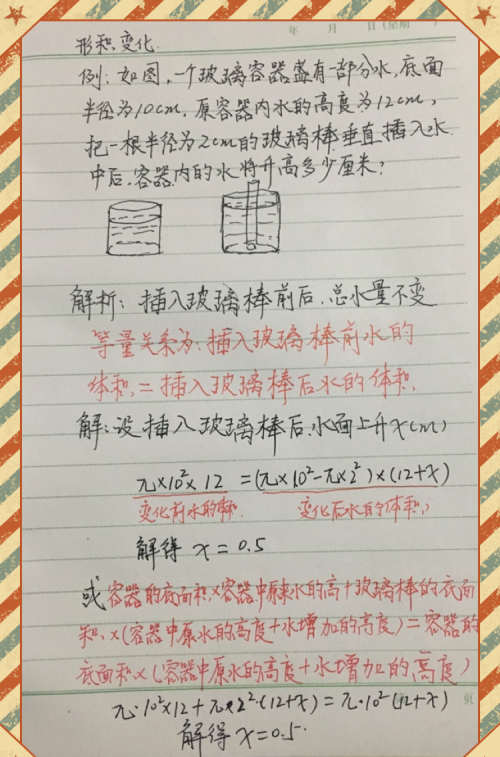 年 月 日(星期 )
形积变化.
例:如图,一个玻璃容器盛有一部分水,底面
半径为10cm,原容器内水的高度为12cm,
把一根半径为2cm的玻璃棒垂直插入水
中后,容器内的水将升高多少厘米?
解析:插入玻璃棒前后,总水量不变
等量关系为:插入玻璃棒前水的
体积=插入玻璃棒后水的体积.
解:设插入玻璃棒后,水面上升x(cm)
π×10²×12=(π×10²-π×2²)×(12+x)
变化前水的体积 变化后水的体积
解得 x=0.5
或 容器的底面积×容器中原来水的高+玻璃棒的底面
积×(容器中原水的高度+水增加的高度)=容器的
底面积×(容器中原水的高度+水增加的高度)
頁
π·10²×12+π×2²·(12+x)=π·10²(12+x)
解得 x=0.5.